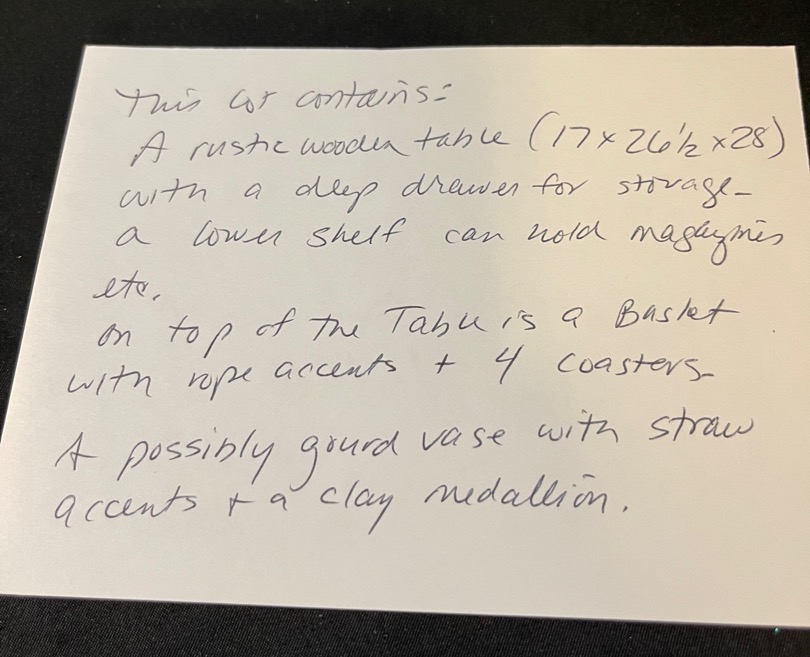 This lot contains:
A rustic wooden table (17 x 26 1/2 x 28)
with a deep drawer for storage -
a lower shelf can hold magazines
etc.
on top of the Table is a Basket
with rope accents + 4 coasters -
A possibly gourd vase with straw
accents + a clay medallion.